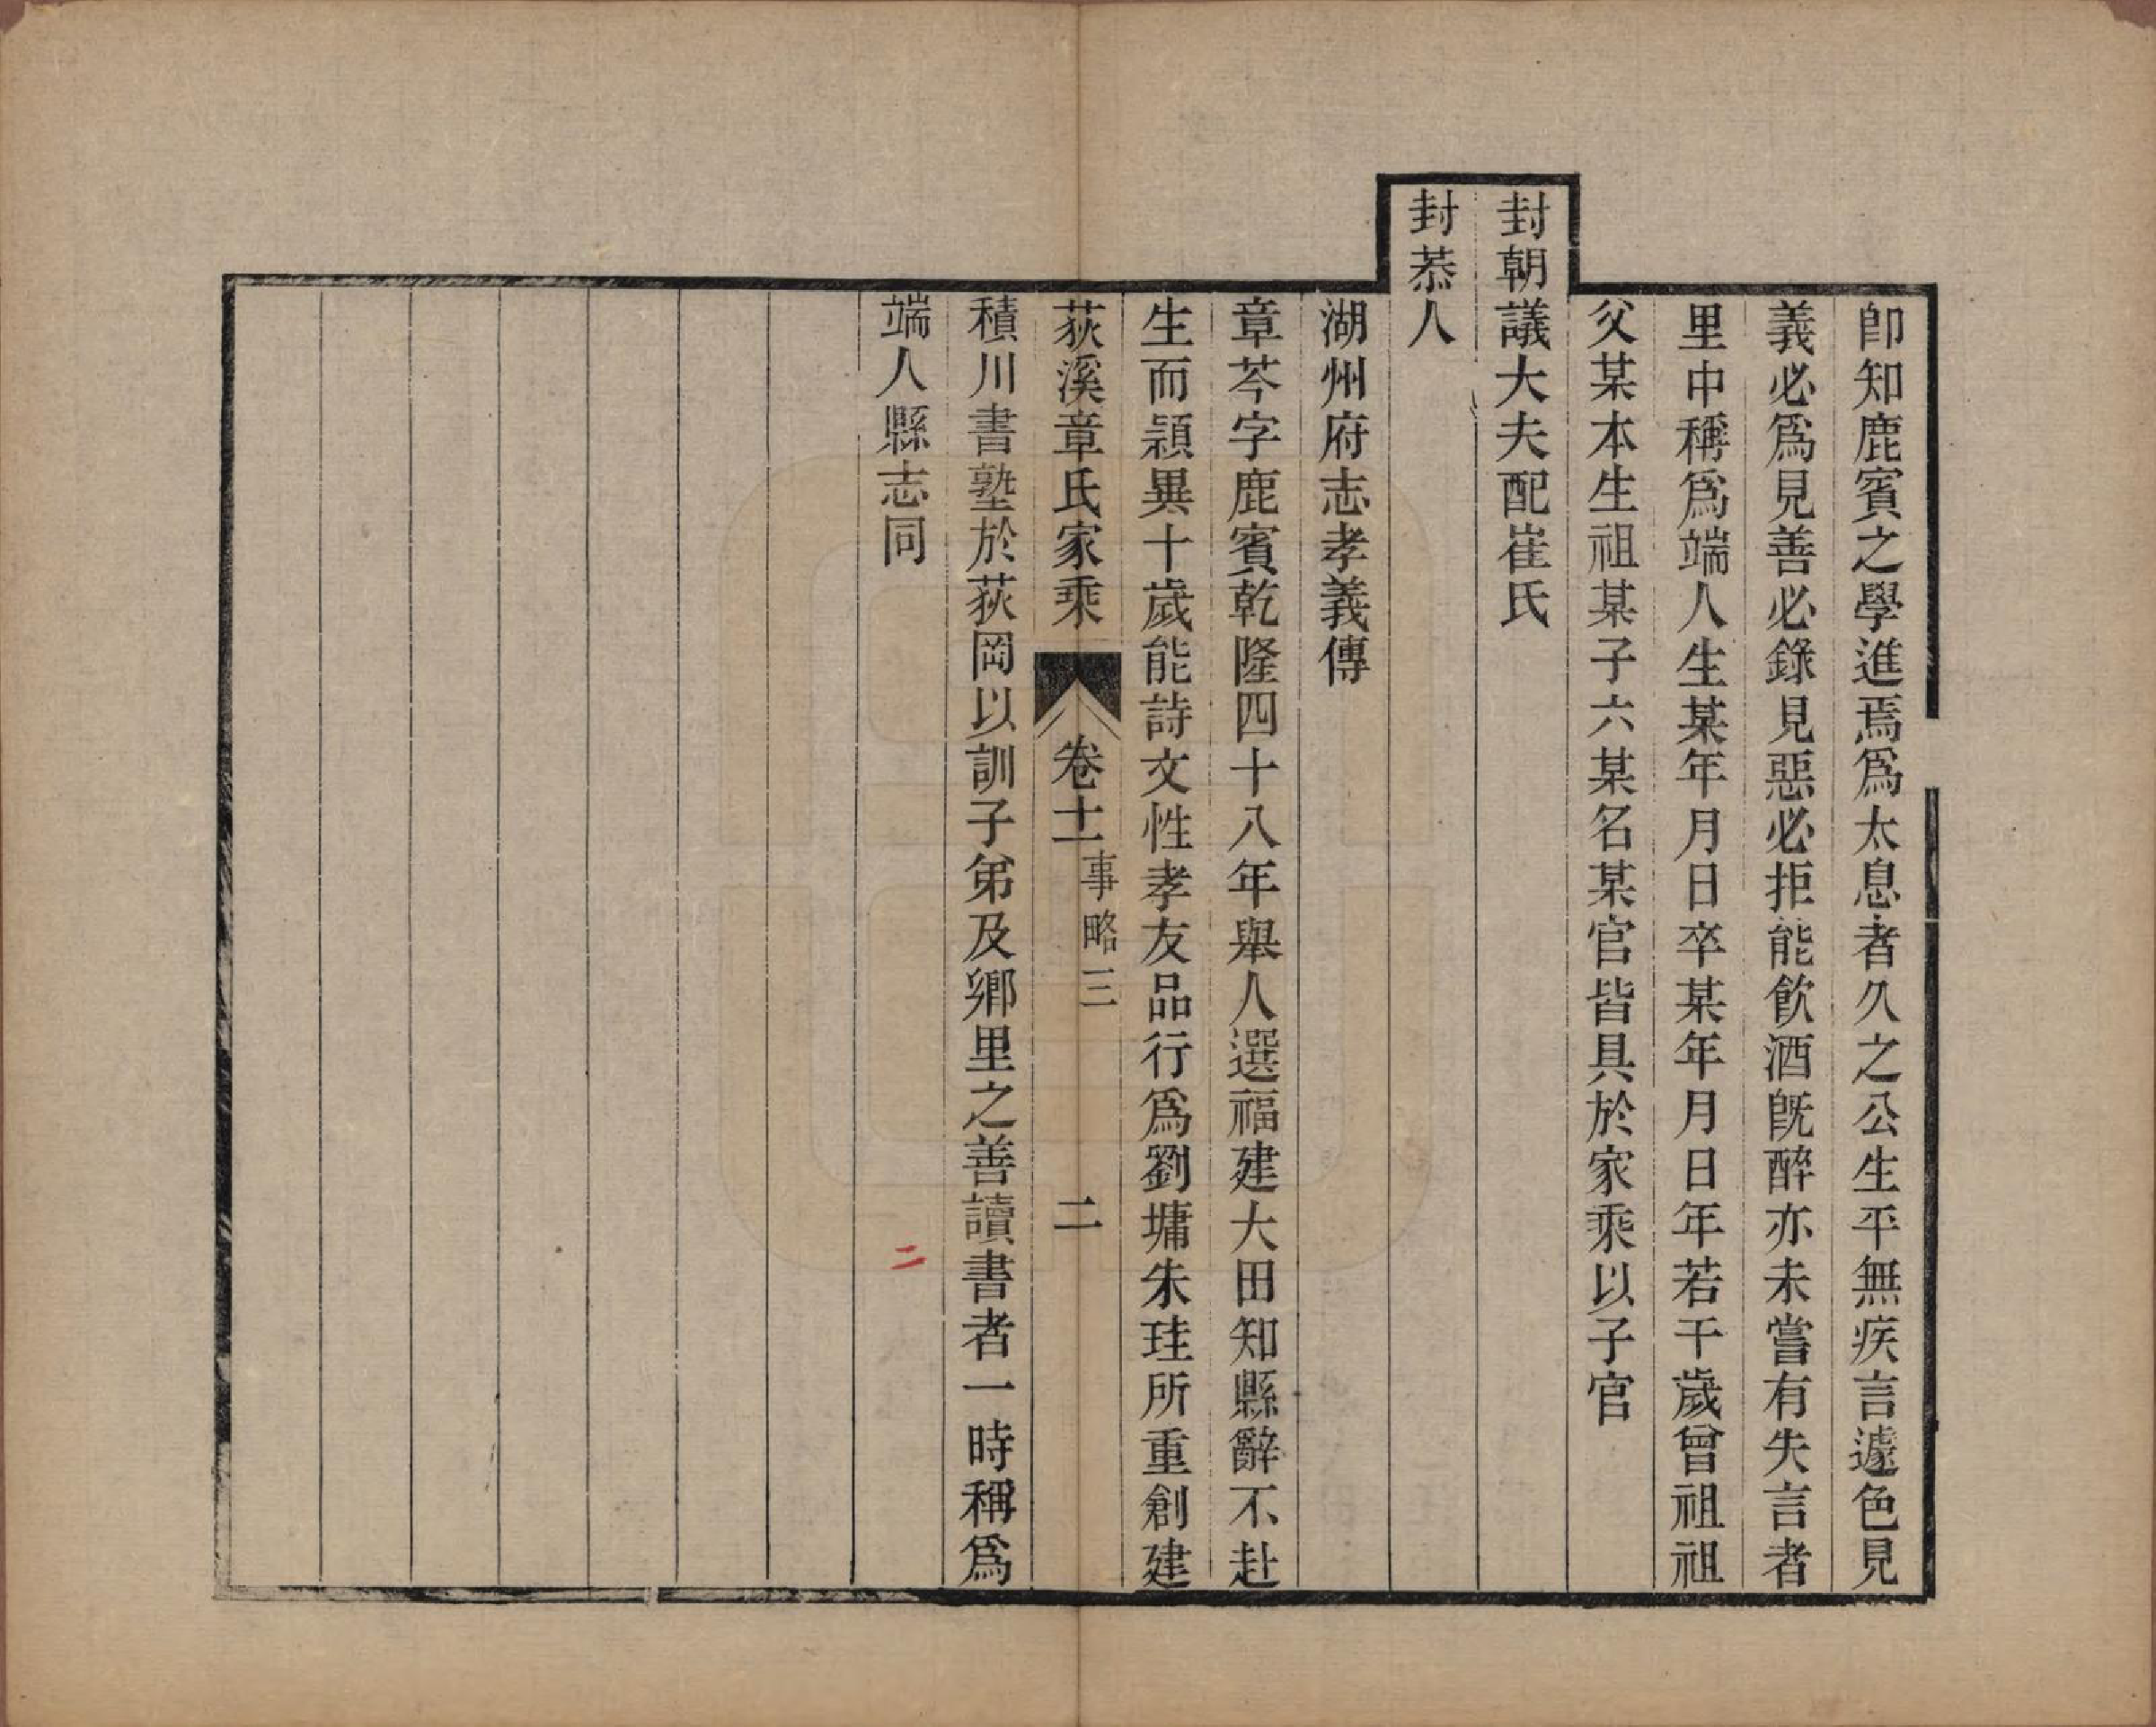 卽知鹿賓之學進焉爲太息者久之公生平無疾言遽色見
義必爲見善必錄見惡必拒能飮酒旣醉亦未嘗有失言者
里中稱爲端人生某年月日卒某年月日年若干歲曾祖祖
父某本生祖某子六某名某官皆具於家乘以子官
封朝議大夫配崔氏
封恭人
湖州府志孝義傳
章芩字鹿賓乾隆四十八年舉人選福建大田知縣辭不赴
生而穎異十歲能詩文性孝友品行爲劉墉朱珪所重創建
荻溪章氏家乘 卷十一 事略三 二
積川書塾於荻岡以訓子弟及鄉里之善讀書者一時稱爲
端人縣志同
二